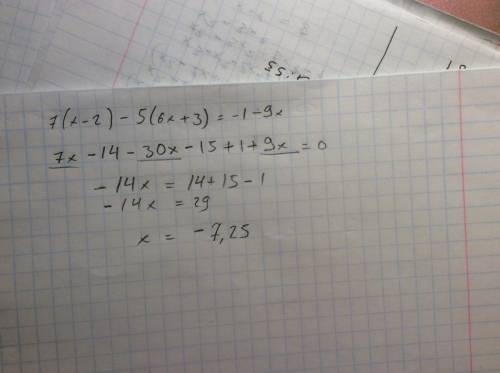 7(x-2) - 5(6x+3) = -1-9x
7x -14 - 30x -15 +1 + 9x = 0
-14x = 14+15-1
-14x = 29
x = -7,25